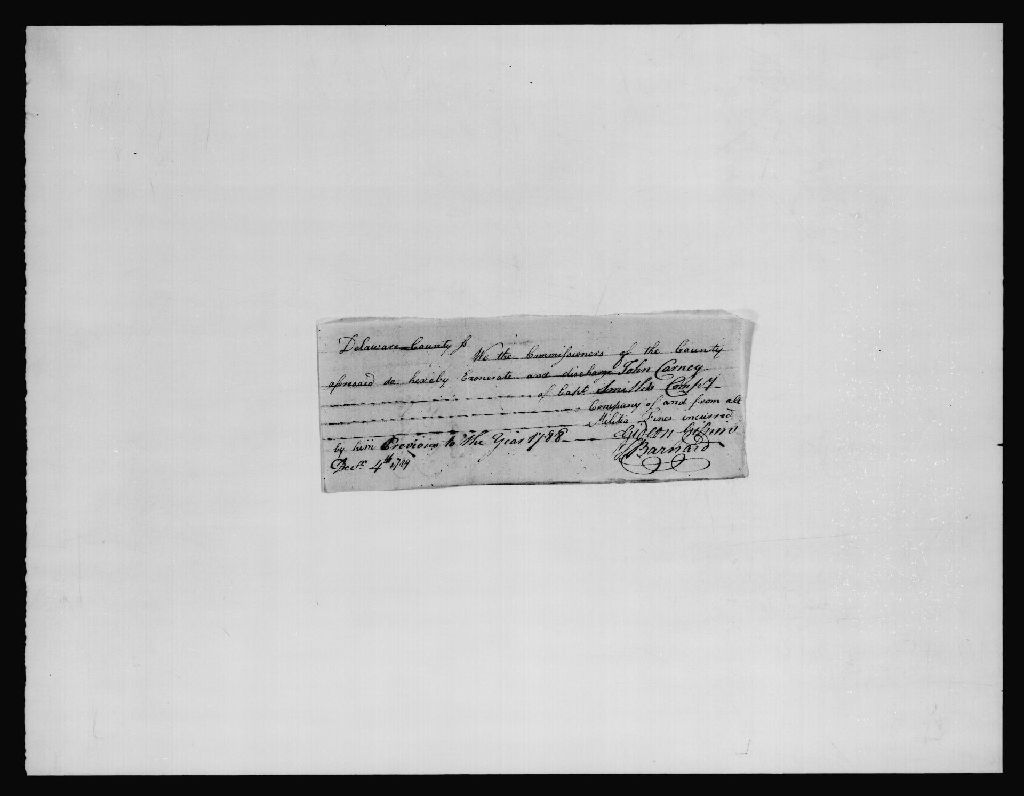 Delaware County ss
We the Commissioners of the County
aforesaid do hereby Exonerate and discharge John Carney
of Capt Smiths Comp.y
Company of and from all
Militia Fines incurred
by him Previous to the Year 1788
Decr. 4th 1789
Barnard